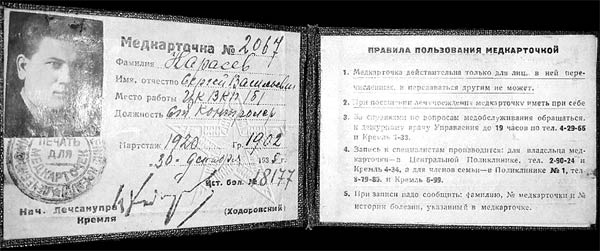 Медкарточка № 2067
Фамилия Карасев
Имя, отчество Сергей Васильевич
Место работы Цк ВКП(б)
Должность
Партстаж 1920 Гр 1902
30 декабря 1935 г.
Ист. бол. № 18177
Нач. Лечсанупра
Кремля
(Ходоровский)
ПЕЧАТЬ
ДЛЯ
МЕДКАРТОЧЕК
ПРАВИЛА ПОЛЬЗОВАНИЯ МЕДКАРТОЧКОЙ
1. Медкарточка действительна только для лиц, в ней пере-
численных, и передаваться другим не может.
2. При посещении лечучреждения медкарточку иметь при себе
3. За справками по вопросам медобслуживания обращаться
к дежурному врачу Управления до 19 часов по тел. 4-29-66
и Кремль 7-33.
4. Запись к специалистам производится: для владельца мед-
карточки—в Центральной Поликлинике, тел. 2-90-24 и
Кремль 4-34, а для членов семьи—в Поликлинике № 1, тел
8-79-85. и Кремль 6-99.
5. При записи надо сообщить: фамилию, № медкарточки и №
истории болезни, указанный в медкарточке.